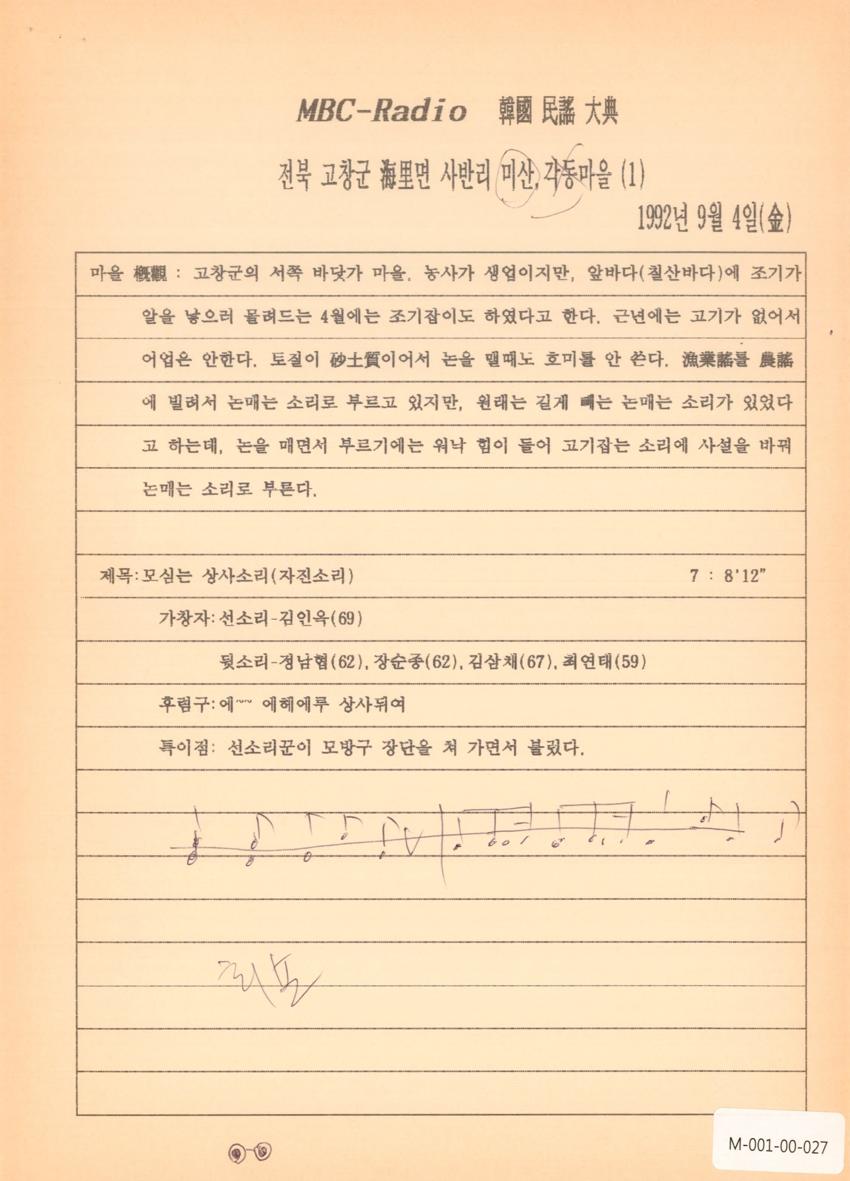 MBC-Radio 韓國 民謠 大典
전북 고창군 海里면 사반리 미산, 각동마을 (1)
1992년 9월 4일(金)
마을 槪觀 : 고창군의 서쪽 바닷가 마을. 농사가 생업이지만, 앞바다(칠산바다)에 조기가
알을 낳으러 몰려드는 4월에는 조기잡이도 하였다고 한다. 근년에는 고기가 없어서
어업은 안한다. 토질이 砂土質이어서 논을 맬때도 호미를 안 쓴다. 漁業謠를 農謠
에 빌려서 논매는 소리로 부르고 있지만, 원래는 길게 빼는 논매는 소리가 있었다
고 하는데, 논을 매면서 부르기에는 워낙 힘이 들어 고기잡는 소리에 사설을 바꿔
논매는 소리로 부른다.
제목:모심는 상사소리(자진소리) 7 : 8'12"
가창자:선소리-김인옥(69)
뒷소리-정남협(62), 장순종(62), 김삼채(67), 최연태(59)
후렴구:에~~ 에헤에루 상사뒤여
특이점: 선소리꾼이 모방구 장단을 쳐 가면서 불렀다.
M-001-00-027